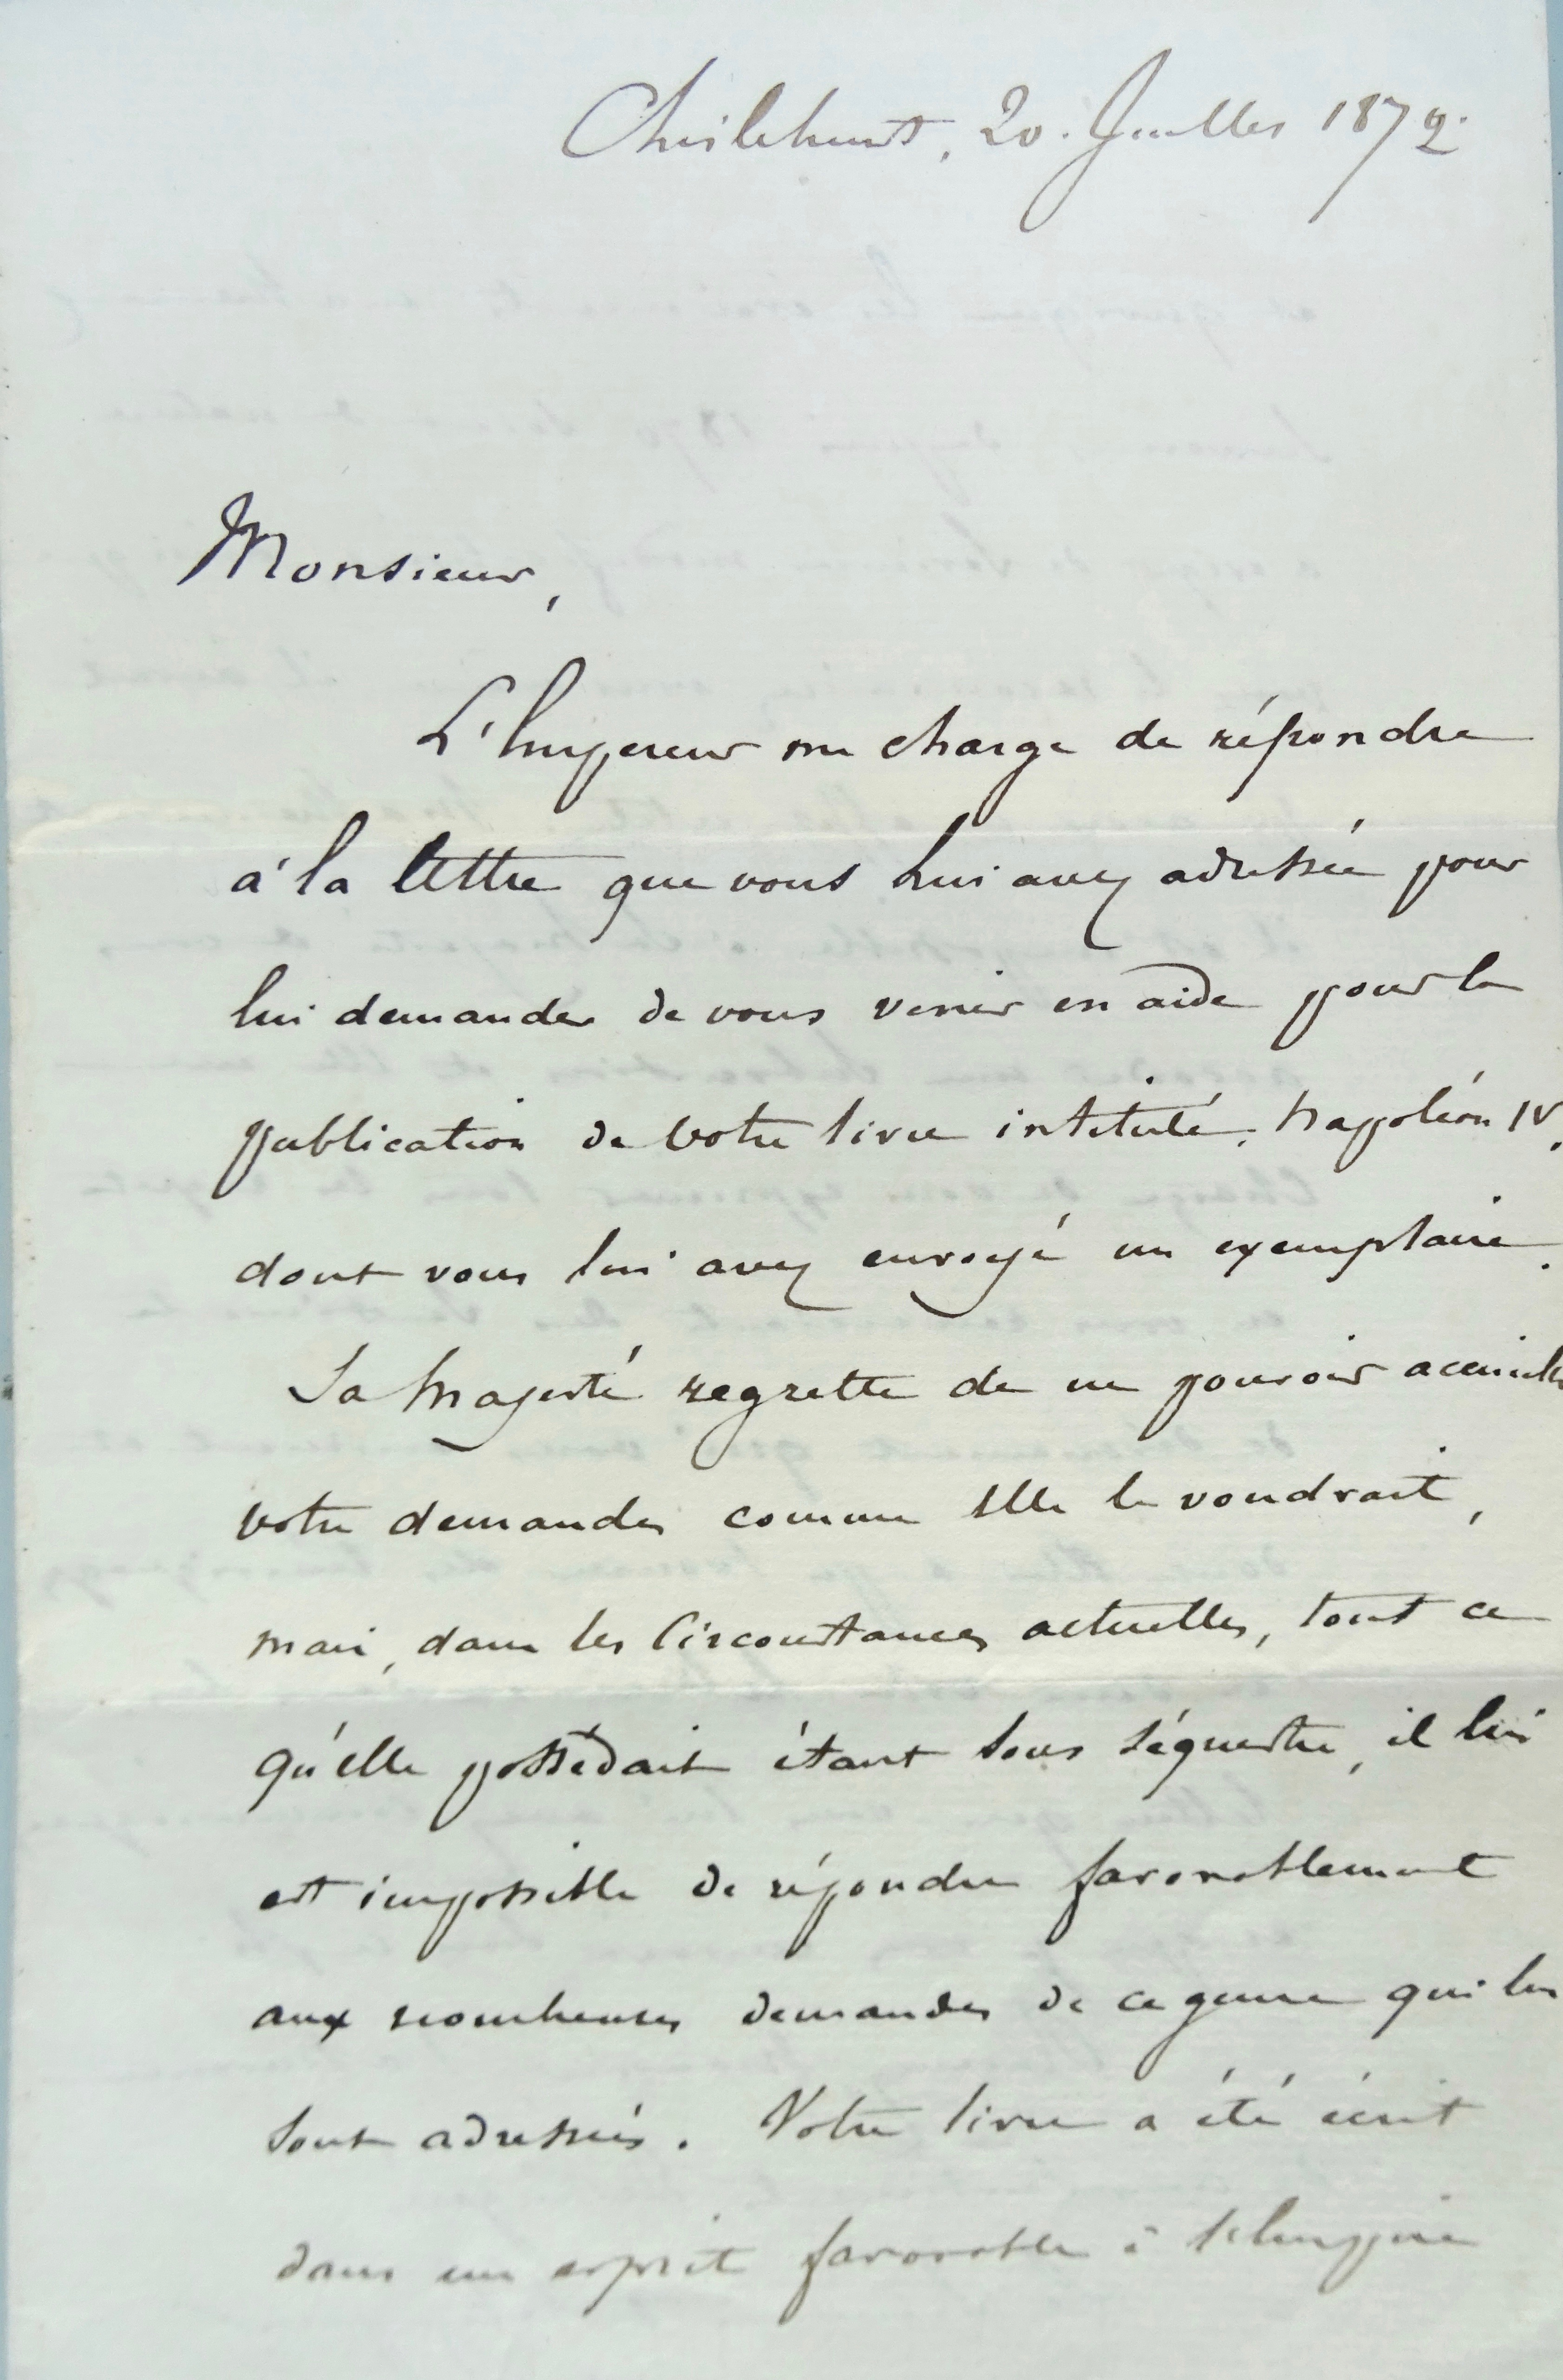 Chislehurst, 20. Juillet 1872.
Monsieur,
L'Empereur me charge de répondre
à la lettre que vous lui avez adressée pour
lui demander de vous venir en aide pour la
publication de votre livre intitulé: Napoléon IV,
dont vous lui avez envoyé un exemplaire.
Sa Majesté regrette de ne pouvoir accueillir
votre demande comme Elle le voudrait,
mais, dans les Circonstances actuelles, tout ce
qu'elle possédait étant sous séquestre, il lui
est impossible de répondre favorablement
aux nombreuses demandes de ce genre qui lui
sont adressées. Votre livre a été écrit
dans un esprit favorable à l'Empire